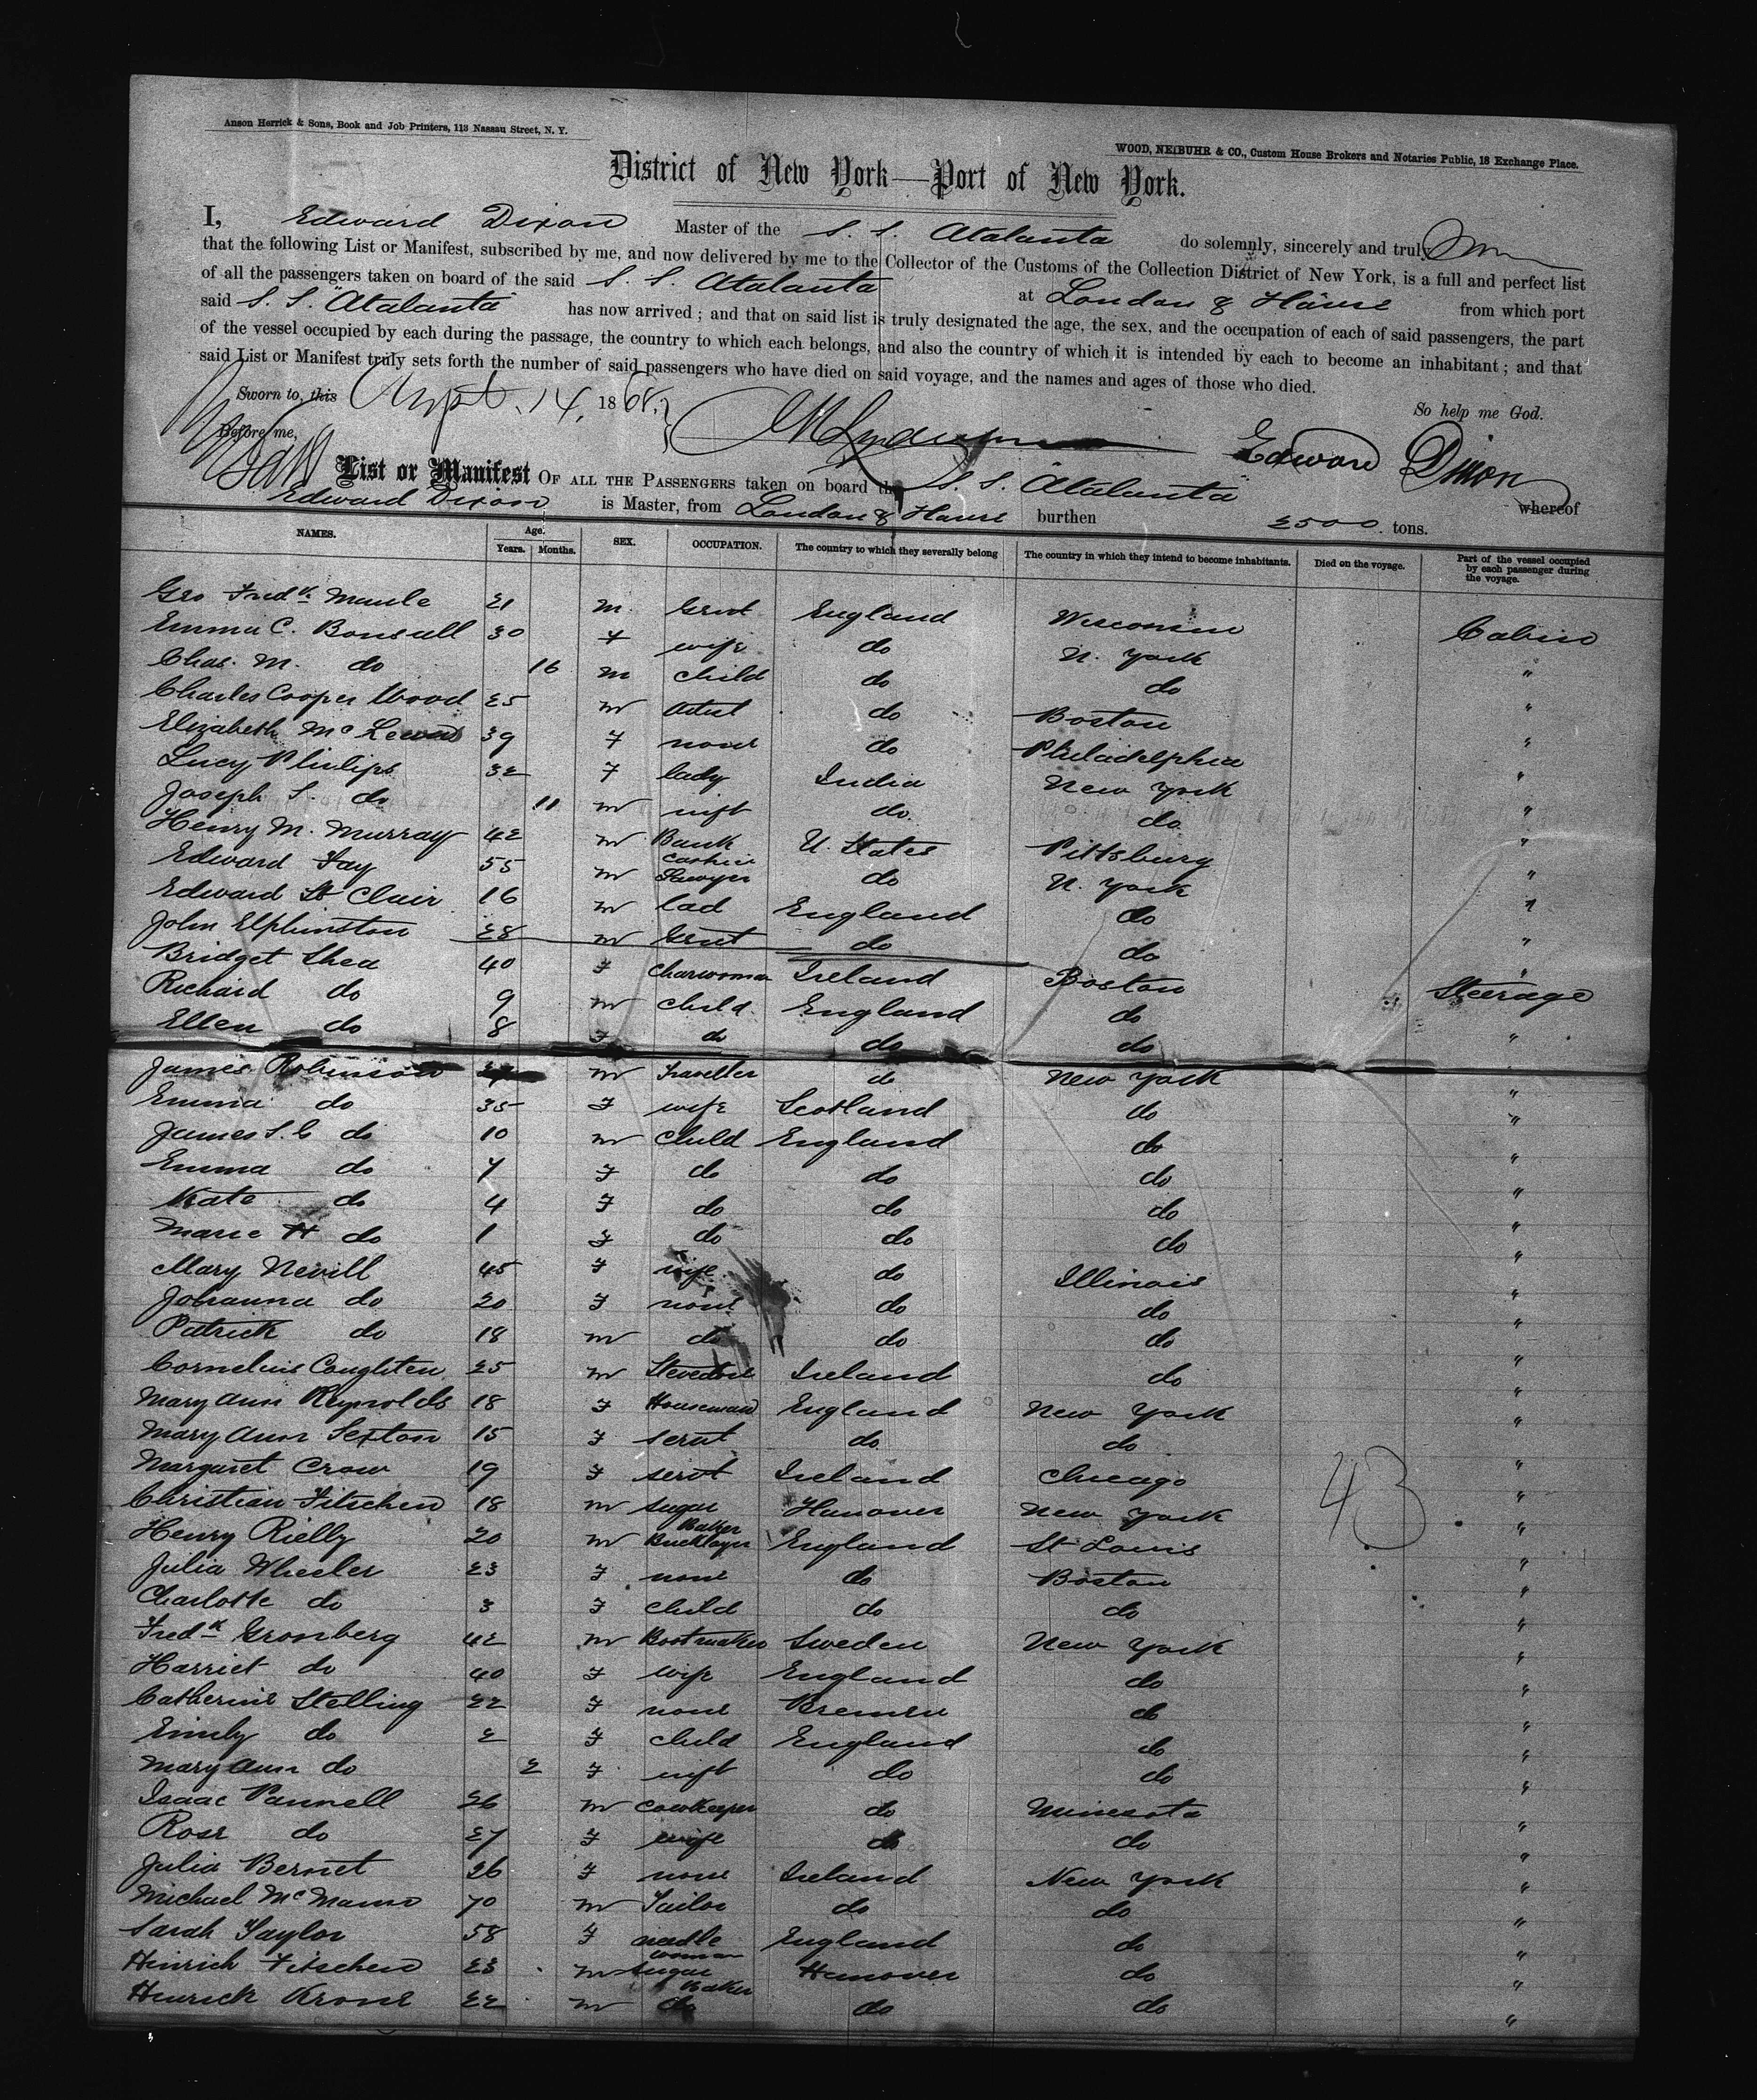 Anson Herrick & Sons, Book and Job Printers, 113 Nassau Street, N. Y.
WOOD, NEIBUHR & CO., Custom House Brokers and Notaries Public, 18 Exchange Place.
District of New York—Port of New York.
I, Edward Dixon Master of the S. S. Atalanta do solemnly, sincerely and truly
that the following List or Manifest, subscribed by me, and now delivered by me to the Collector of the Customs of the Collection District of New York, is a full and perfect list
of all the passengers taken on board of the said S. S. Atalanta at London & Havre from which port
said S. S. "Atalanta" has now arrived; and that on said list is truly designated the age, the sex, and the occupation of each of said passengers, the part
of the vessel occupied by each during the passage, the country to which each belongs, and also the country of which it is intended by each to become an inhabitant; and that
said List or Manifest truly sets forth the number of said passengers who have died on said voyage, and the names and ages of those who died.
Sworn to, this Sept. 14, 1868, So help me God.
Before me, Edward Dixon
List or Manifest OF ALL THE PASSENGERS taken on board the S. S. "Atalanta" whereof
Edward Dixon is Master, from London & Havre burthen 2500 tons.
NAMES. Age. Years. Months. SEX. OCCUPATION. The country to which they severally belong The country in which they intend to become inhabitants. Died on the voyage. Part of the vessel occupied by each passenger during the voyage.
Geo Fredk Maule 21 M. Gent England Wisconsin Cabin
Emma C. Bonsall 30 F wife do N. York "
Chas. M. do 16 M child do do "
Charles Cooper Wood 25 M Artist do Boston "
Elizabeth Mc 39 F none do Philadelphia "
Lucy Philips 32 F lady India New York "
Joseph S. do 11 M inft do. do "
Henry M. Murray 42 M Bank Cashier U. States Pittsburg "
Edward Fay 55 M Lawyer do N. York "
Edward St Clair 16 M lad England do "
John Elphinston 28 M Gent do do "
Bridget Shea 40 F Charwoman Ireland Boston Steerage
Richard do 9 M child England do "
Ellen do 8 F do do do "
James Robinson M Traveller do New York "
Emma do 35 F wife Scotland do "
James S. C do 10 M Child England do "
Emma do 7 F do do do "
Kate do 4 F do do do "
Marie H do 1 F do do do "
Mary Nevill 45 F wife do Illinois "
Johanna do 20 F none do do "
Patrick do 18 M do do do "
Cornelius Coughlen 25 M Stevedore Ireland do "
Mary Ann Reynolds 18 F Housemaid England New York "
Mary Ann Sexton 15 F servt do do "
Margaret Crow 19 F servt Ireland Chicago 43 "
Christian Fitschen 18 M Sugar Baker Hanover New York "
Henry Rielly 20 M Bricklayer England St Louis "
Julia Wheeler 23 F none do Boston "
Charlotte do 3 F child do do "
Fredk Gronberg 42 M Bootmaker Sweden New York "
Harriet do 40 F wife England do "
Catherine Stelling 22 F none Bremen do "
Emily do 2 F child England do "
Mary Ann do 2 F inft do do "
Isaac Pannell 26 M Cowkeeper do Minesota "
Rose do 27 F wife do do "
Julia Bernet 26 F none Ireland New York "
Michael Mc Manus 70 M Tailor do do "
Sarah Taylor 58 F needle woman England do "
Hinrich Fitschen 23 M Sugar Baker Hanover do "
Hinrich Krone 22 M do do do "